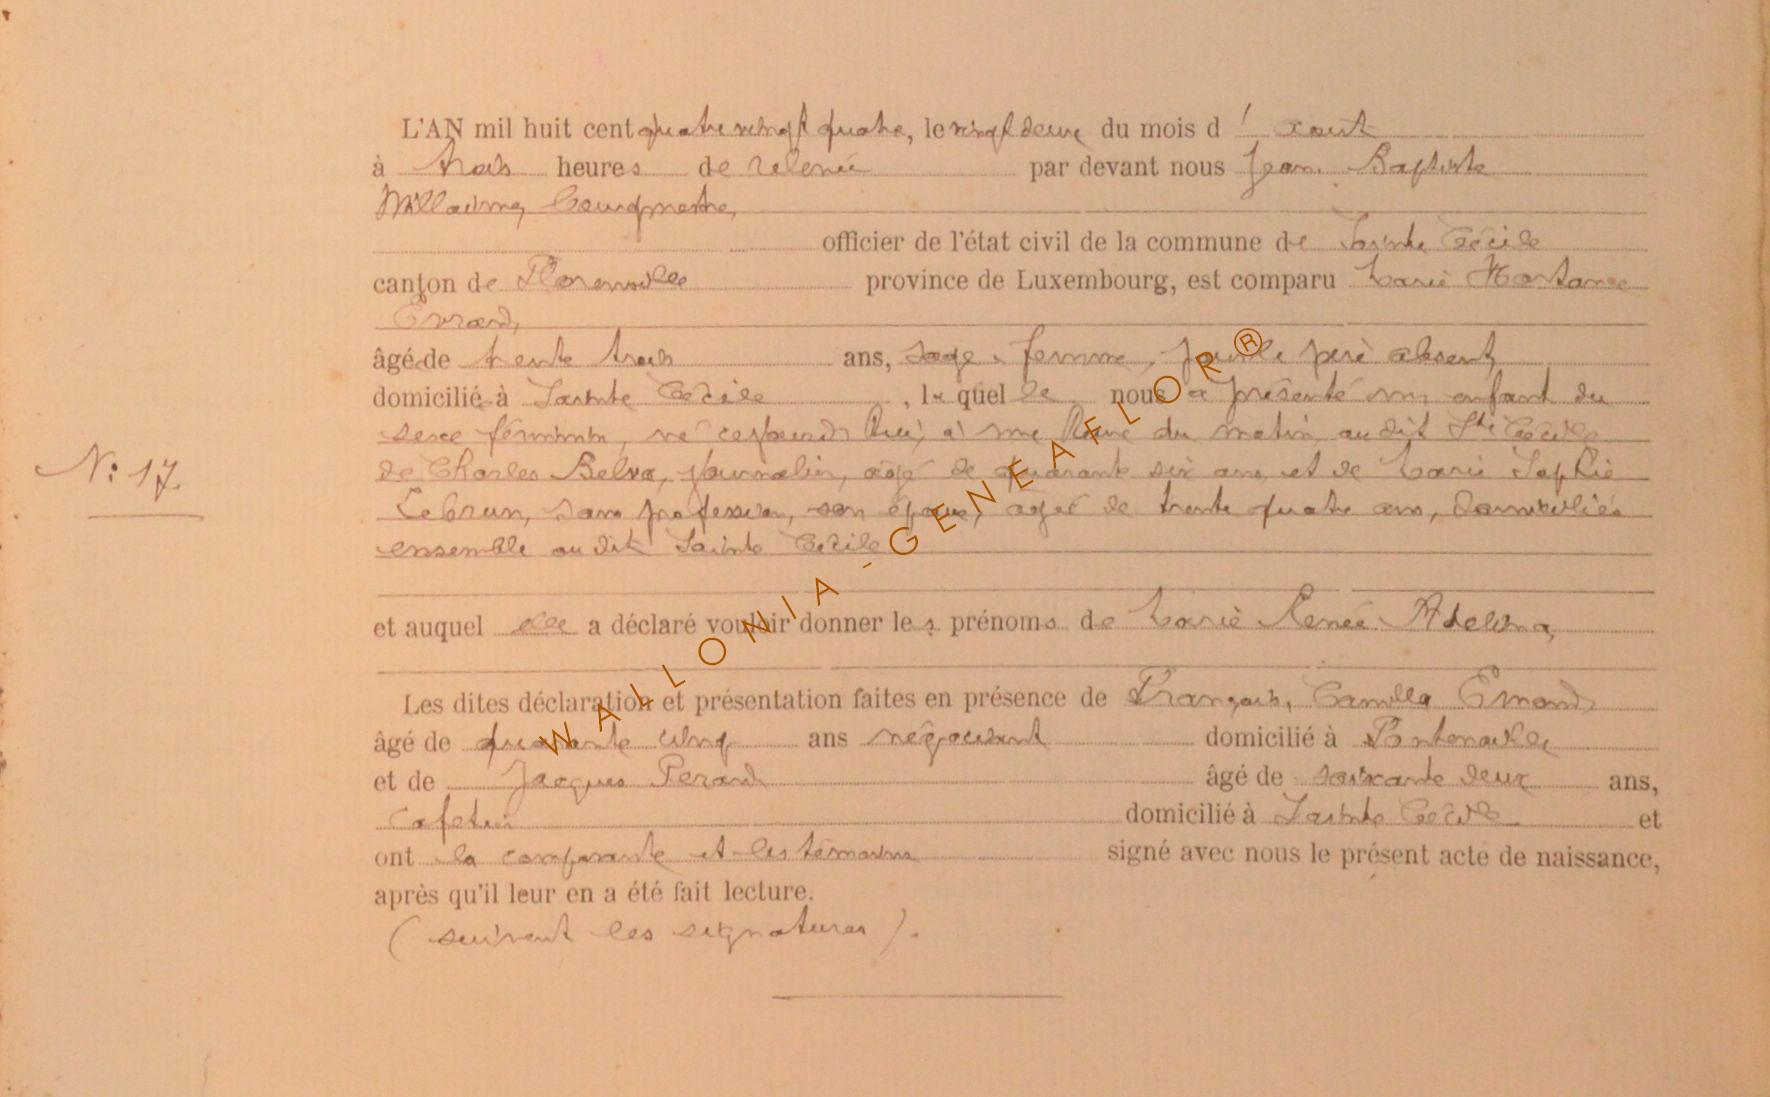 L'AN mil huit cent quatre vingt quatre, le vingt deux du mois d'aout
à trois heures de relevée par devant nous Jean Baptiste
Bourgmestre,
officier de l'état civil de la commune de Sainte Cécile
canton de Florenville province de Luxembourg, est comparu Marie Hortance
Evrard,
âgé de trente trois ans, sage-femme, pour le père absent,
domicilié à Sainte Cécile, laquelle nous a présenté un enfant du
sexe féminin, né cejourd'hui, à une heure du matin, au dit Ste Cécile
de Charles Belva, journalier, agé de quarante six ans, et de Marie Sophie
Lebrun, sans profession, son épouse, agée de trente quatre ans, domiciliés
N: 17.
ensemble au dit Sainte Cécile
et auquel elle a déclaré vouloir donner les prénoms de Marie Renée Adelina,
Les dites déclaration et présentation faites en présence de François, Camille
âgé de quarante cinq ans négociant domicilié à Fontenoille
et de Jacques Perard âgé de soixante deux ans,
Cafetier domicilié à Sainte Cécile et
ont la comparante et les témoins signé avec nous le présent acte de naissance,
après qu'il leur en a été fait lecture.
(suivent les signatures).
WALLONIA-GENEAFLOR®